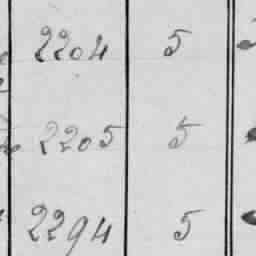 2204 5
2205 5
2294 5